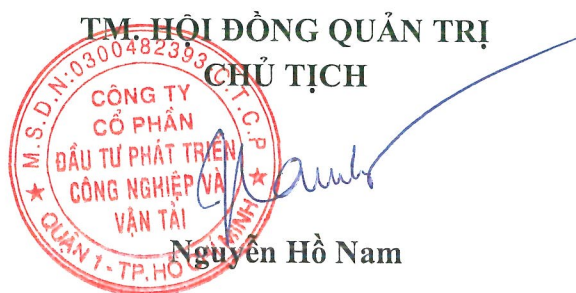 TM. HỘI ĐỒNG QUẢN TRỊ
CHỦ TỊCH
M.S.D.N:0300482393-C.T.C.P
CÔNG TY
CỔ PHẦN
ĐẦU TƯ PHÁT TRIỂN
CÔNG NGHIỆP VÀ
VẬN TẢI
QUẬN 1 - TP. HỒ CHÍ MINH
Nguyễn Hồ Nam